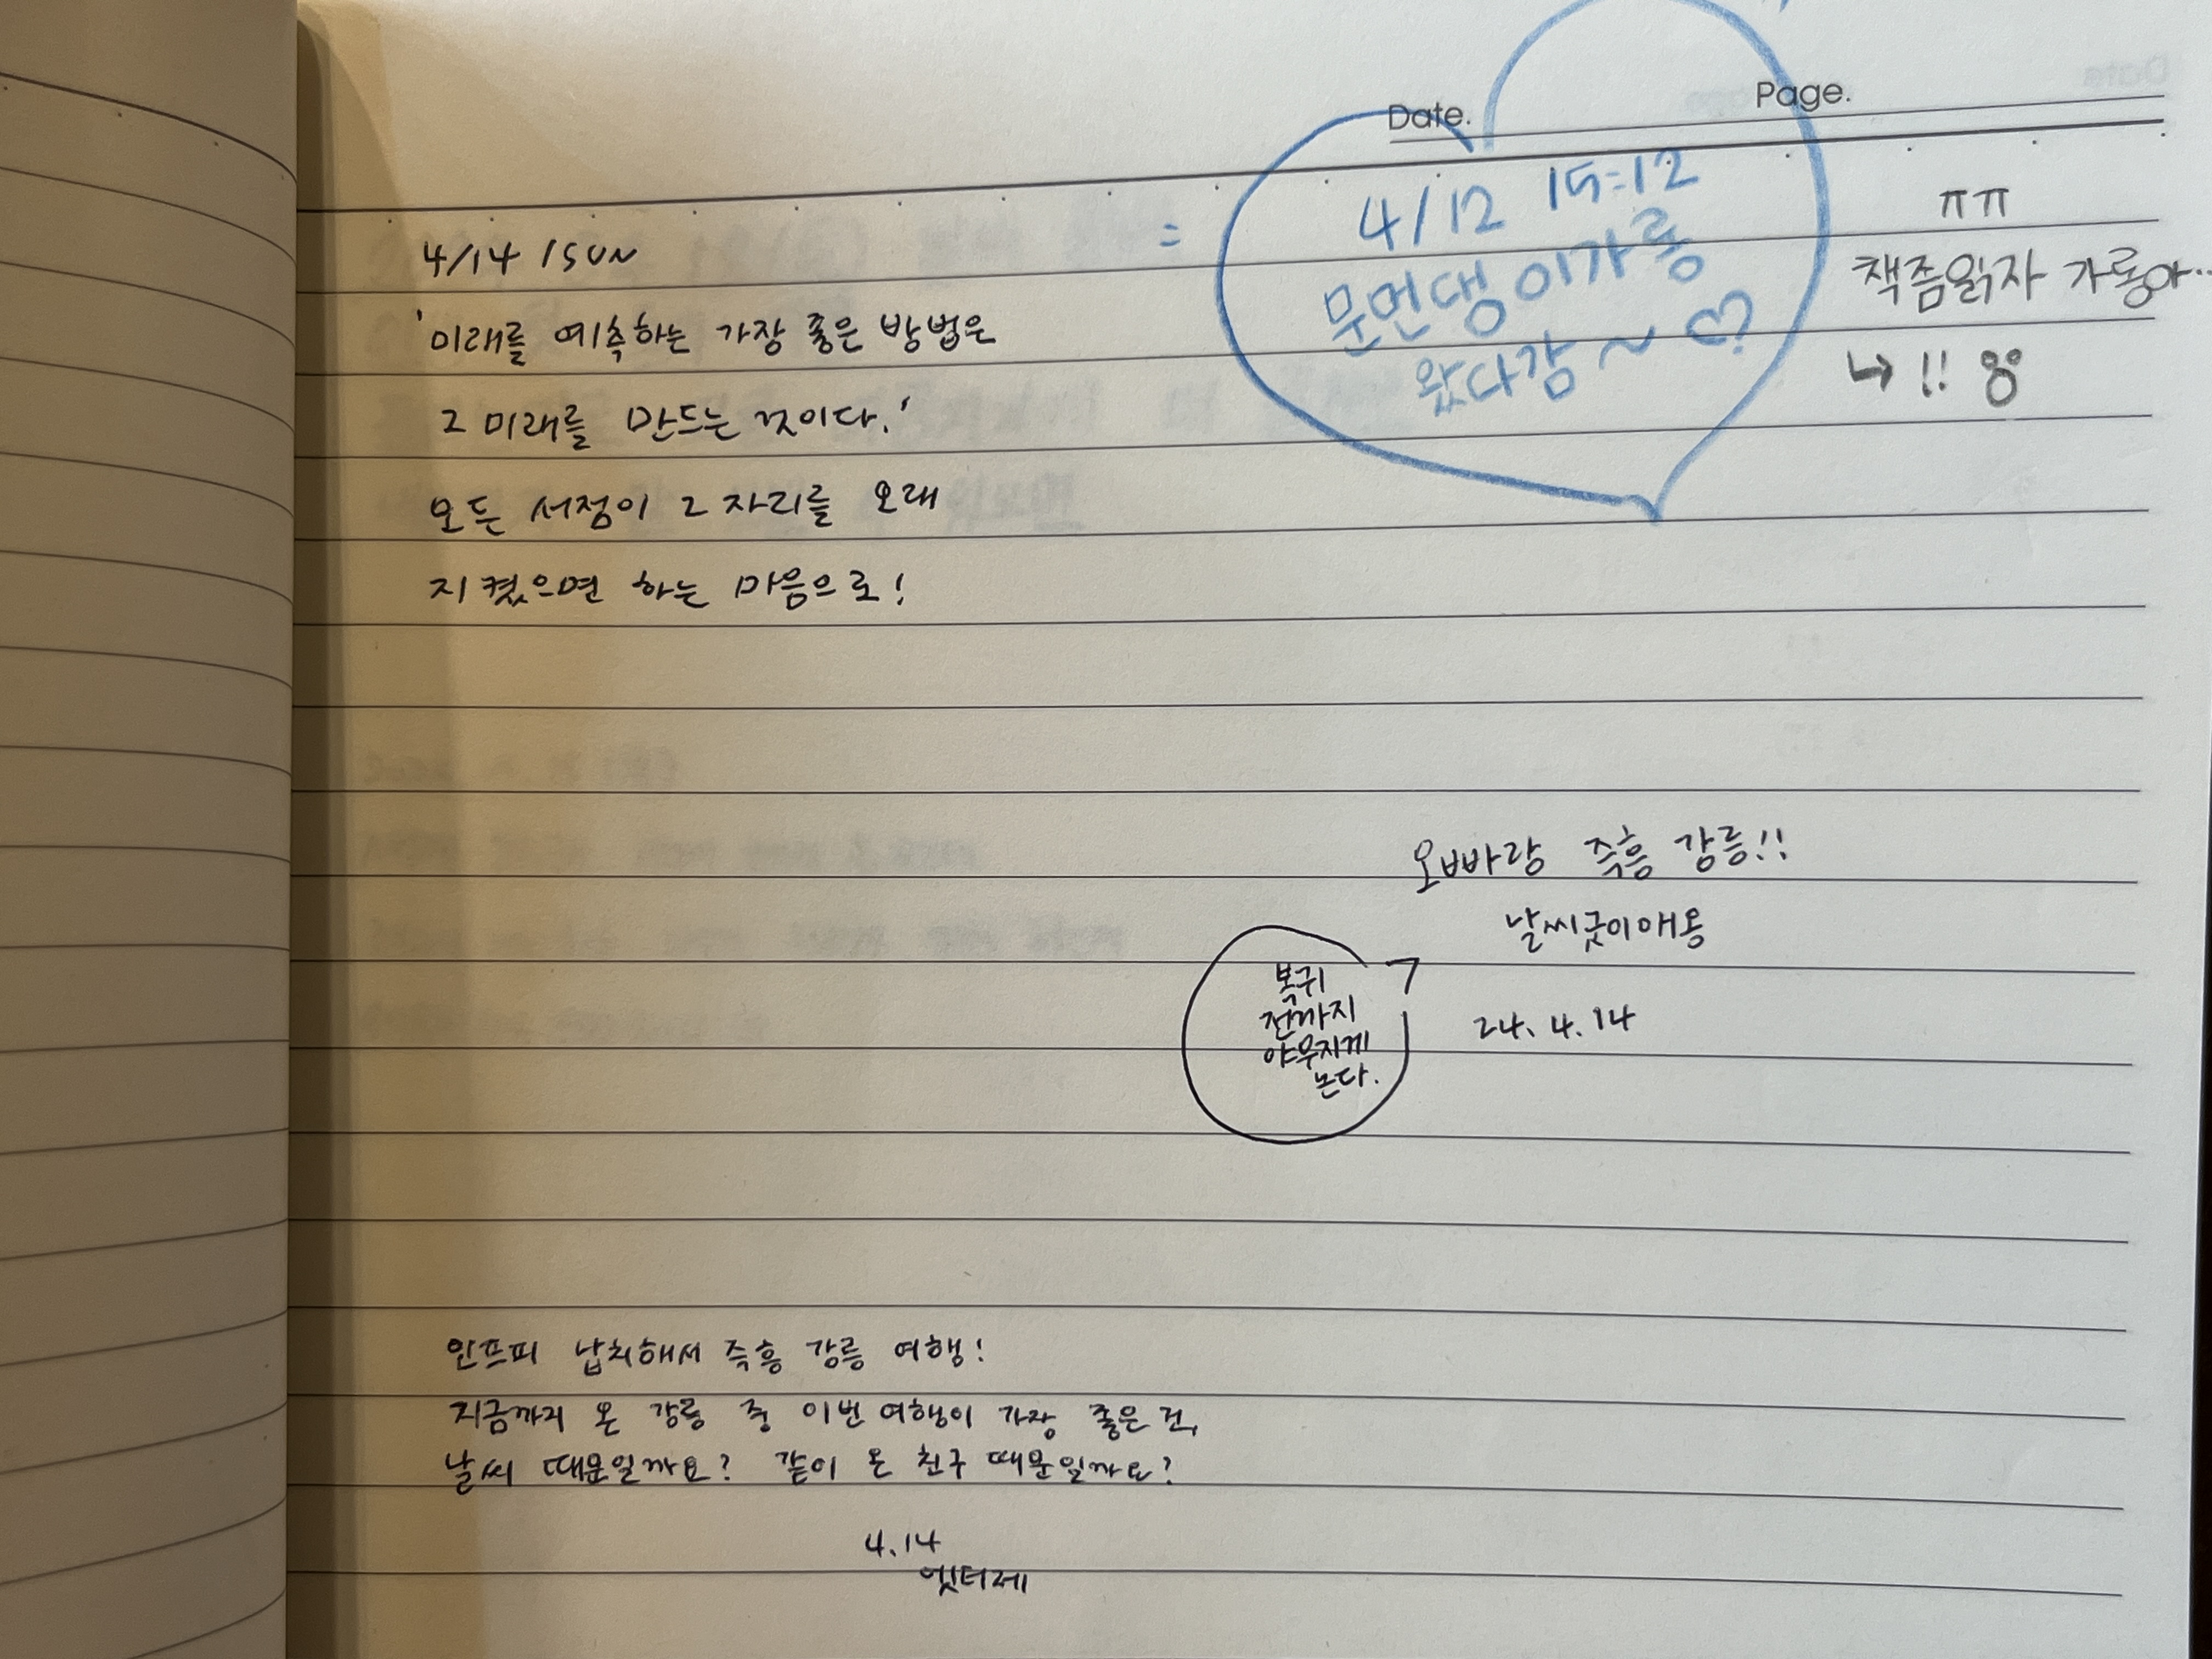 Date.
Page.
4/14 /SUN
'미래를 예측하는 가장 좋은 방법은
그 미래를 만드는 것이다.'
모든 서점이 그 자리를 오래
지켰으면 하는 마음으로!
4/12 15:12
문먼댕이가롱
왔다감~♡
ㅠㅠ
책좀읽자 가롱아..
↳ !!
오빠랑 즉흥 강릉!!
날씨굿이애용
24. 4. 14
복귀
전까지
야무지게
논다.
인프피 납치해서 즉흥 강릉 여행!
지금까지 온 강릉 중 이번 여행이 가장 좋은 건,
날씨 때문일까요? 같이 온 친구 때문일까요?
4.14
엣티제